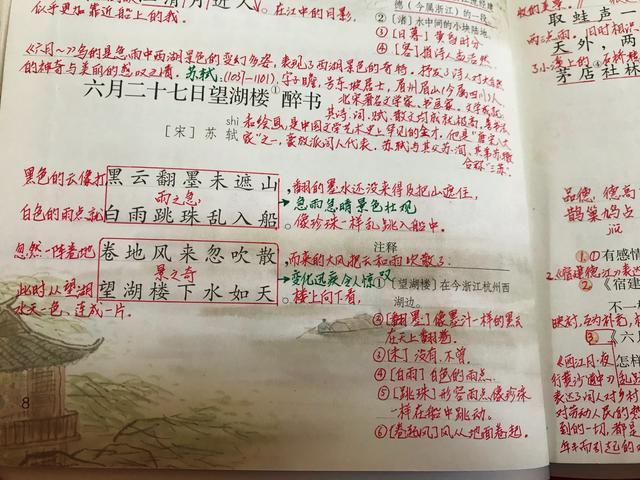 似乎更加靠近船上的我。
在江中的月影。
德（今属浙江）的一段。
②〔渚〕水中间的小块陆地。
③〔日暮〕黄昏时分
④〔客〕指诗人孟浩然。
《六月～》写的是急雨中西湖景色的变幻多姿，表现了西湖景色的奇特。抒发了诗人对大自然
的神奇与美丽的热爱之情。
苏轼：(1037-1101)，字子瞻，号东坡居士，眉州眉山(今属四川)人，
北宋著名文学家、书画家。文学成就
六月二十七日望湖楼①醉书
其诗、词、赋、散文均成就极高，
shì
和绘画，是中国文学艺术史上罕见的全才，他是"唐宋八大
［宋］苏轼
家"之一，豪放派词人代表。苏轼与其父苏洵、其弟苏辙
合称"三苏"。
黑色的云像打
黑云翻墨未遮山
，翻的墨水还没来得及把山遮住，
雨之急
急雨急暗景色壮观
白色的雨点就
白雨跳珠乱入船
。像珍珠一样乱跳入船中。
忽然一阵卷地
卷地风来忽吹散
，而来的大风把云和雨吹散了。
景之奇
变化迅疾令人惊叹
此时从望湖
望湖楼下水如天
。楼上向下看，
水天一色，连成一片。
注释
①〔望湖楼〕在今浙江杭州西
湖边。
②〔翻墨〕像墨汁一样的黑云
在天上翻卷。
③〔未〕没有，不曾。
④〔白雨〕白色的雨点
⑤〔跳珠〕形容雨点像珍珠
一样在船中跳动。
⑥〔卷起风〕风从地面卷起。
8
取蛙声
两三点雨，旧时相识
天外，两
茅店社林
品德，德高
鹊巢鸠占
①有感情
2.《宿建德江》表达
②《宿建
不一
映衬，互为补充，
③
《西江月·夜
怎样
行黄沙道中》
表达了词人对乡村
对劳动人民的热
到的一切，都是